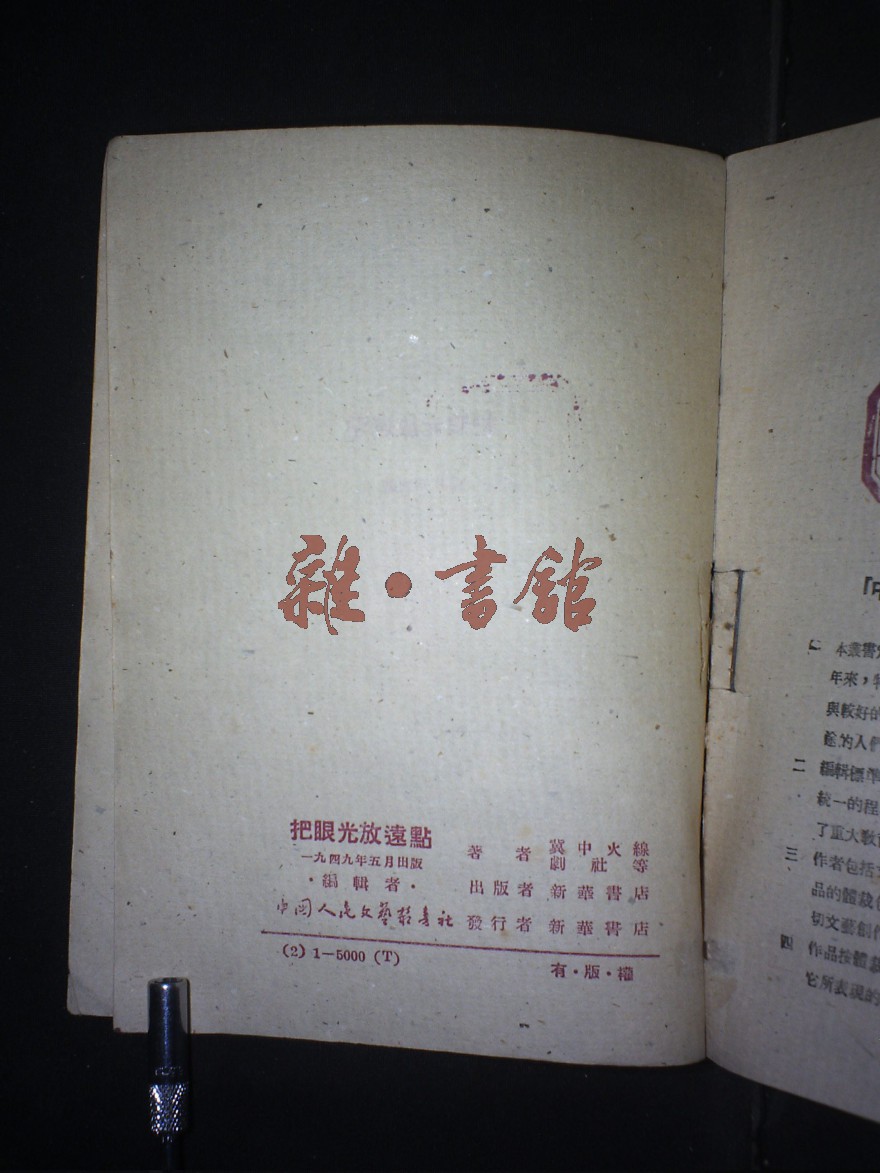 雜·書館
把眼光放遠點
一九四九年五月出版
·編輯者·
中國人民文藝叢書社
著者 冀中火線劇社等
出版者 新華書店
發行者 新華書店
(2) 1—5000 (T)
有·版·權
「中
一 本叢書定
年來，特
與較好的
二 編輯標準
統一的程
了重大教育
三 作者包括
品的體裁
切文藝創作
四 作品按體裁
它所表現的